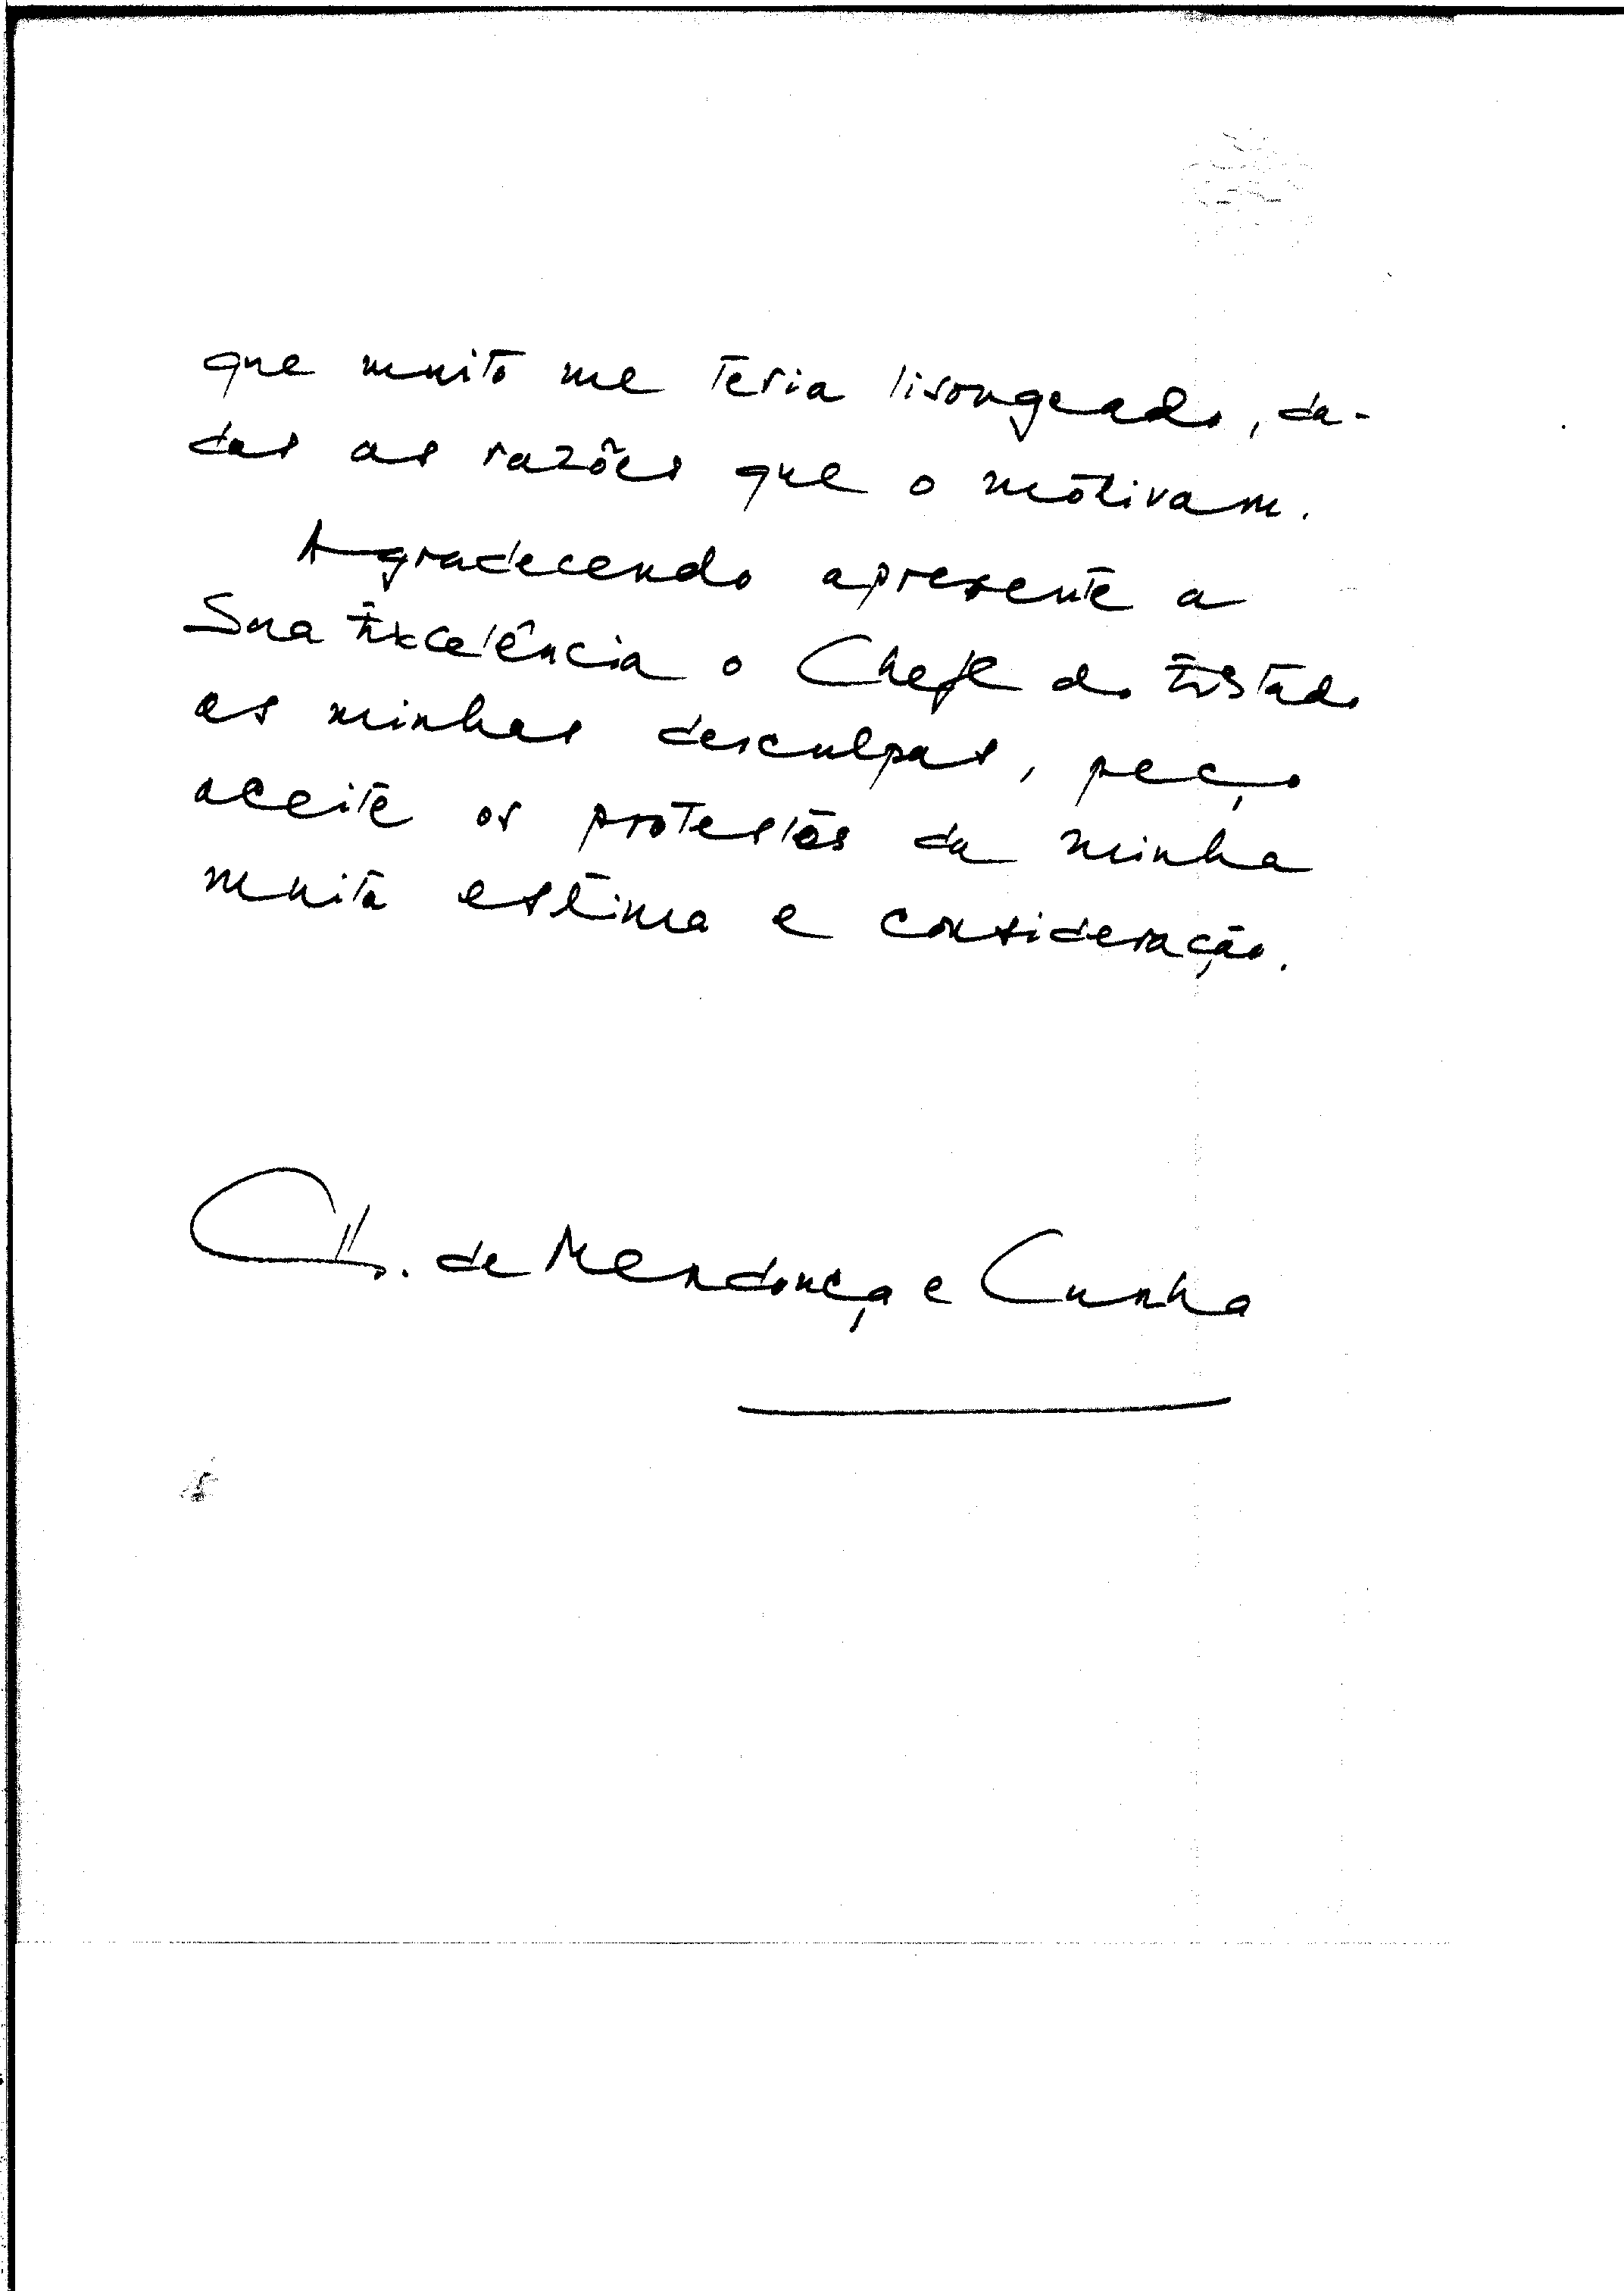 que muito me teria lisongeado, da-
das as razões que o motivam.
Agradecendo apresente a
Sua Excelência o Chefe do Estado
as minhas desculpas, peço
aceite os protestos da minha
muita estima e consideração.
de Mendonça e Cunha